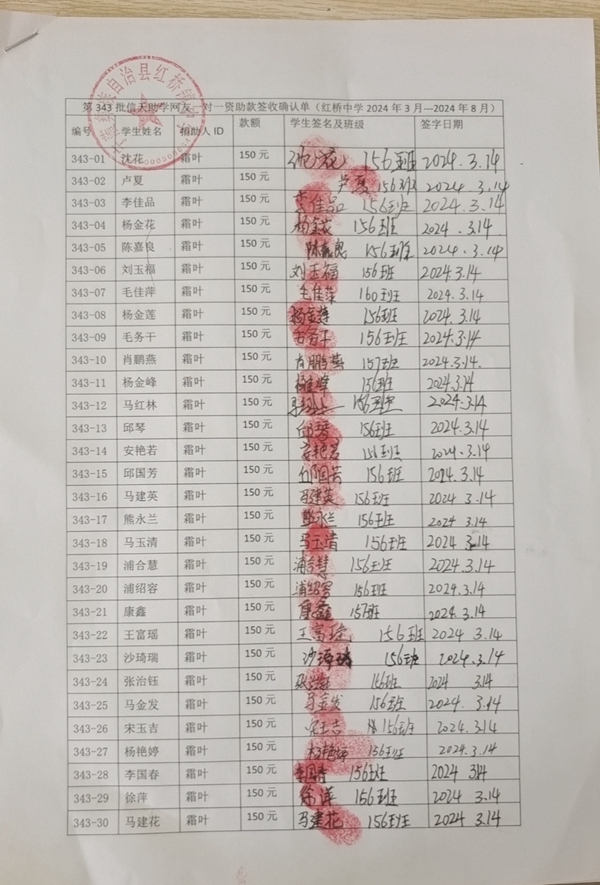 自治县红桥
第 343 批信天助学网友一对一资助款签收确认单（红桥中学 2024 年 3 月—2024 年 8 月）
编号 学生姓名 捐助人 ID 款额 学生签名及班级 签字日期
343-01 沈花 霜叶 150 元 沈花 156班 2024.3.14
343-02 卢夏 霜叶 150 元 卢夏 156班 2024.3.14
343-03 李佳品 霜叶 150 元 李佳品 156班 2024.3.14
343-04 杨金花 霜叶 150 元 杨金花 156班 2024.3.14
343-05 陈嘉良 霜叶 150 元 陈嘉良 156班 2024.3.14
343-06 刘玉福 霜叶 150 元 刘玉福 156班 2024.3.14
343-07 毛佳萍 霜叶 150 元 毛佳萍 160班 2024.3.14
343-08 杨金莲 霜叶 150 元 杨金莲 156班 2024.3.14
343-09 毛务干 霜叶 150 元 毛务干 156班 2024.3.14
343-10 肖鹏燕 霜叶 150 元 肖鹏燕 157班 2024.3.14.
343-11 杨金峰 霜叶 150 元 杨金峰 156班 2024.3.14
343-12 马红林 霜叶 150 元 马红林 156班 2024.3.14
343-13 邱琴 霜叶 150 元 邱琴 156班 2024.3.14
343-14 安艳若 霜叶 150 元 安艳若 156班 2024.3.14
343-15 邱国芳 霜叶 150 元 邱国芳 156班 2024.3.14
343-16 马建英 霜叶 150 元 马建英 156班 2024.3.14
343-17 熊永兰 霜叶 150 元 熊永兰 156班 2024.3.14
343-18 马玉清 霜叶 150 元 马玉清 156班 2024.3.14
343-19 浦合慧 霜叶 150 元 浦合慧 156班 2024.3.14
343-20 浦绍容 霜叶 150 元 浦绍容 156班 2024.3.14
343-21 康鑫 霜叶 150 元 康鑫 157班 2024.3.14
343-22 王富瑶 霜叶 150 元 王富瑶 156班 2024.3.14
343-23 沙琦瑞 霜叶 150 元 沙琦瑞 156班 2024.3.14
343-24 张治钰 霜叶 150 元 张治钰 156班 2024 3.14
343-25 马金发 霜叶 150 元 马金发 156班 2024.3.14
343-26 宋玉吉 霜叶 150 元 宋玉吉 156班 2024.3.14
343-27 杨艳婷 霜叶 150 元 杨艳婷 156班 2024.3.14
343-28 李国春 霜叶 150 元 李国春 156班 2024 3.14
343-29 徐萍 霜叶 150 元 徐萍 156班 2024.3.14
343-30 马建花 霜叶 150 元 马建花 156班 2024.3.14